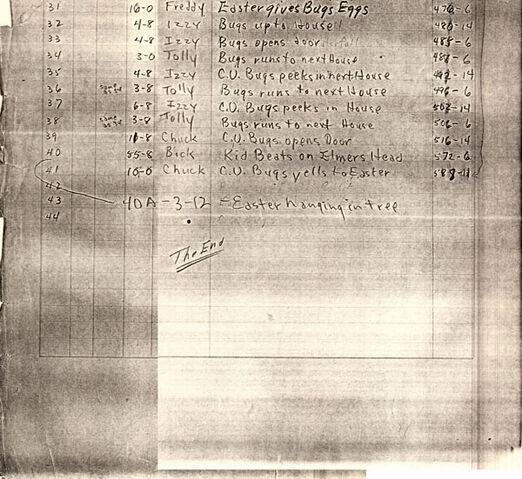 31 16-0 Freddy Easter gives Bugs Eggs 476-6
32 4-8 Izzy Bugs up to House!!
33 4-8 Izzy Bugs opens door
34 3-0 Tolly Bugs runs to next House
35 4-8 Izzy C.U. Bugs peeks in next House
36 3-8 Tolly Bugs runs to next House 496-6
37 6-8 Izzy C.U. Bugs peeks in House
38 3-8 Tolly Bugs runs to next House 506-6
39 Chuck C.U. Bugs opens Door 516-14
40 55-8 Bick Kid Beats on Elmers Head 572-6
41 16-0 Chuck C.U. Bugs yells to Easter
42
43 40A-3-12 - Easter hanging in tree
44
The End